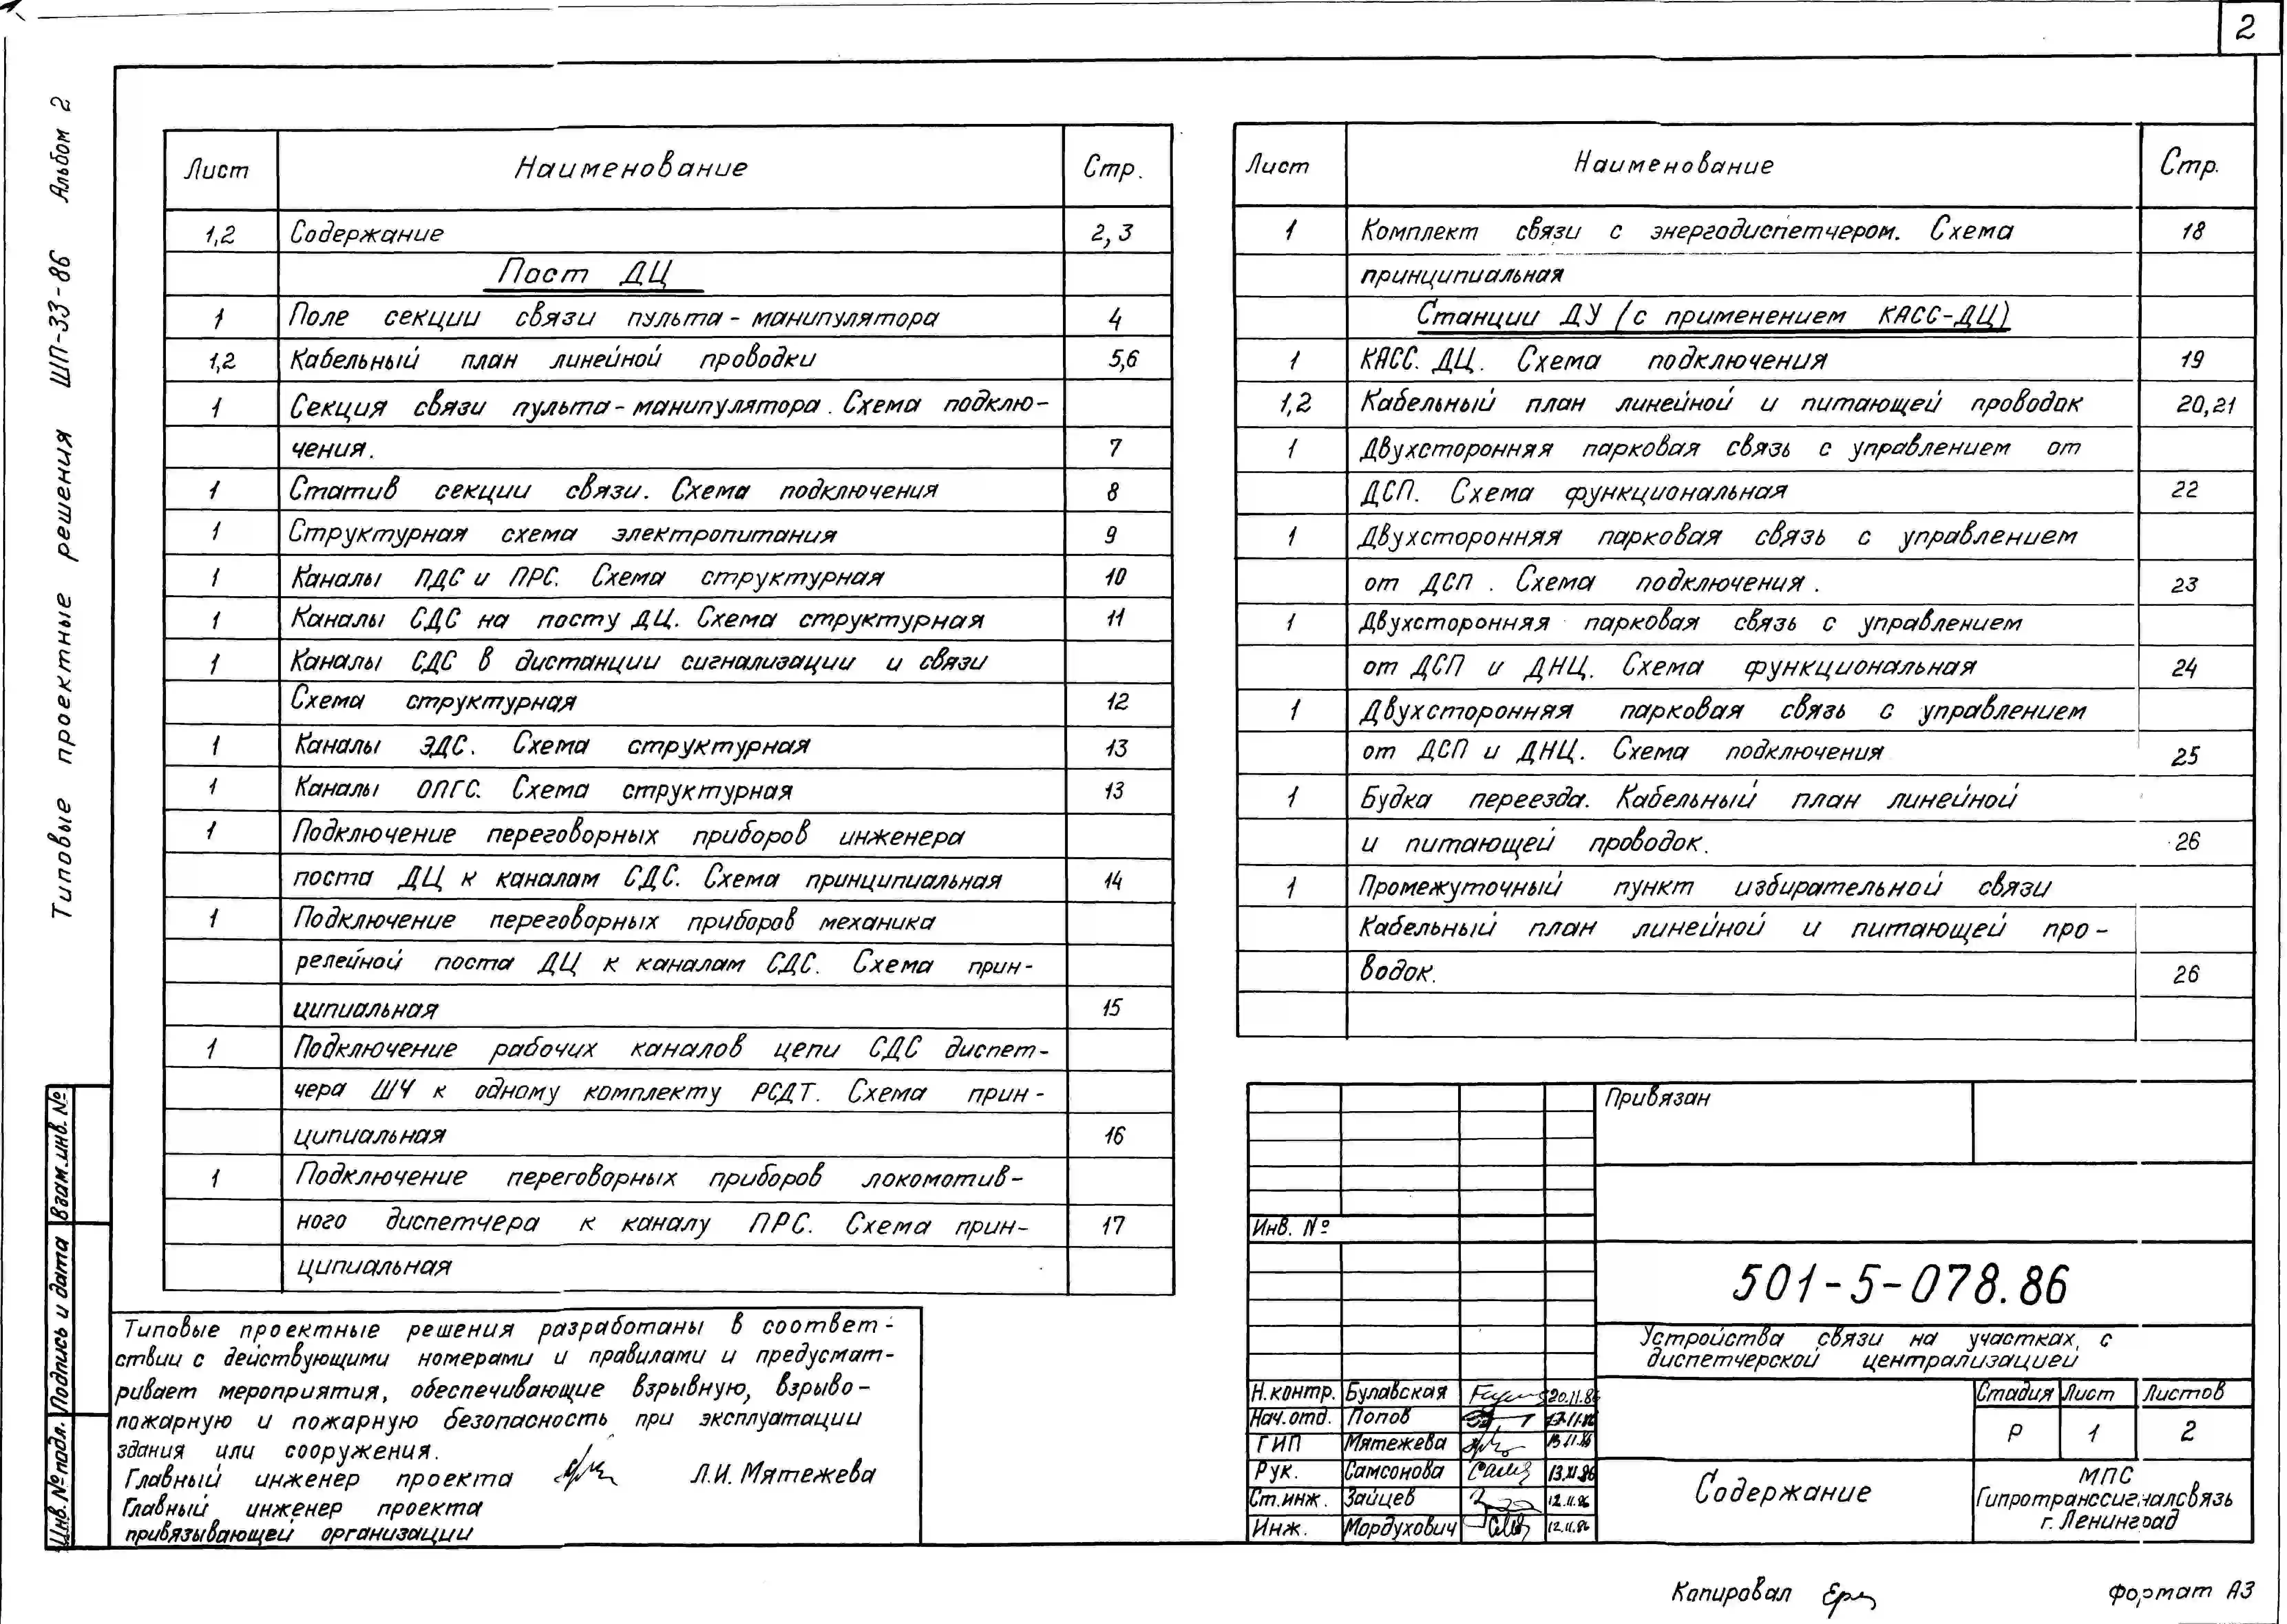 2
Типовые проектные решения ШП-33-86 Альбом 2
Лист Наименование Стр.
1,2 Содержание 2, 3
Пост ДЦ
1 Поле секции связи пульта - манипулятора 4
1,2 Кабельный план линейной проводки 5,6
1 Секция связи пульта - манипулятора. Схема подклю-
чения. 7
1 Статив секции связи. Схема подключения 8
1 Структурная схема электропитания 9
1 Каналы ПДС и ПРС. Схема структурная 10
1 Каналы СДС на посту ДЦ. Схема структурная 11
1 Каналы СДС в дистанции сигнализации и связи
Схема структурная 12
1 Каналы ЭДС. Схема структурная 13
1 Каналы ОПГС. Схема структурная 13
1 Подключение переговорных приборов инженера
поста ДЦ к каналам СДС. Схема принципиальная 14
1 Подключение переговорных приборов механика
релейной поста ДЦ к каналам СДС. Схема прин-
ципиальная 15
1 Подключение рабочих каналов цепи СДС диспет-
чера ШЧ к одному комплекту РСДТ. Схема прин-
ципиальная 16
1 Подключение переговорных приборов локомотив-
ного диспетчера к каналу ПРС. Схема прин- 17
ципиальная
Лист Наименование Стр.
1 Комплект связи с энергодиспетчером. Схема 18
принципиальная
Станции ДУ (с применением КАСС-ДЦ)
1 КАСС. ДЦ. Схема подключения 19
1,2 Кабельный план линейной и питающей проводок 20,21
1 Двухсторонняя парковая связь с управлением от
ДСП. Схема функциональная 22
1 Двухсторонняя парковая связь с управлением
от ДСП. Схема подключения. 23
1 Двухсторонняя парковая связь с управлением
от ДСП и ДНЦ. Схема функциональная 24
1 Двухсторонняя парковая связь с управлением
от ДСП и ДНЦ. Схема подключения 25
1 Будка переезда. Кабельный план линейной
и питающей проводок. 26
1 Промежуточный пункт избирательной связи
Кабельный план линейной и питающей про-
водок. 26
Типовые проектные решения разработаны в соответ-
ствии с действующими номерами и правилами и предусмат-
ривает мероприятия, обеспечивающие взрывную, взрыво-
пожарную и пожарную безопасность при эксплуатации
здания или сооружения.
Главный инженер проекта Л.И. Мятежева
Главный инженер проекта
привязывающей организации
Взам.инв.№
Подпись и дата
Инв.№подл.
Привязан
Инв. №
501-5-078.86
Устройства связи на участках с
диспетчерской централизацией
Н.контр. Булавская 20.11.86
Нач.отд. Попов 17.11.86
ГИП Мятежева 13.11.86
Рук. Самсонова 13.XI.86
Ст.инж. Зайцев 12.11.86
Инж. Мордухович 12.11.86
Стадия Лист Листов
Р 1 2
Содержание
МПС
Гипротранссигналсвязь
г. Ленинград
Копировал
Формат А3